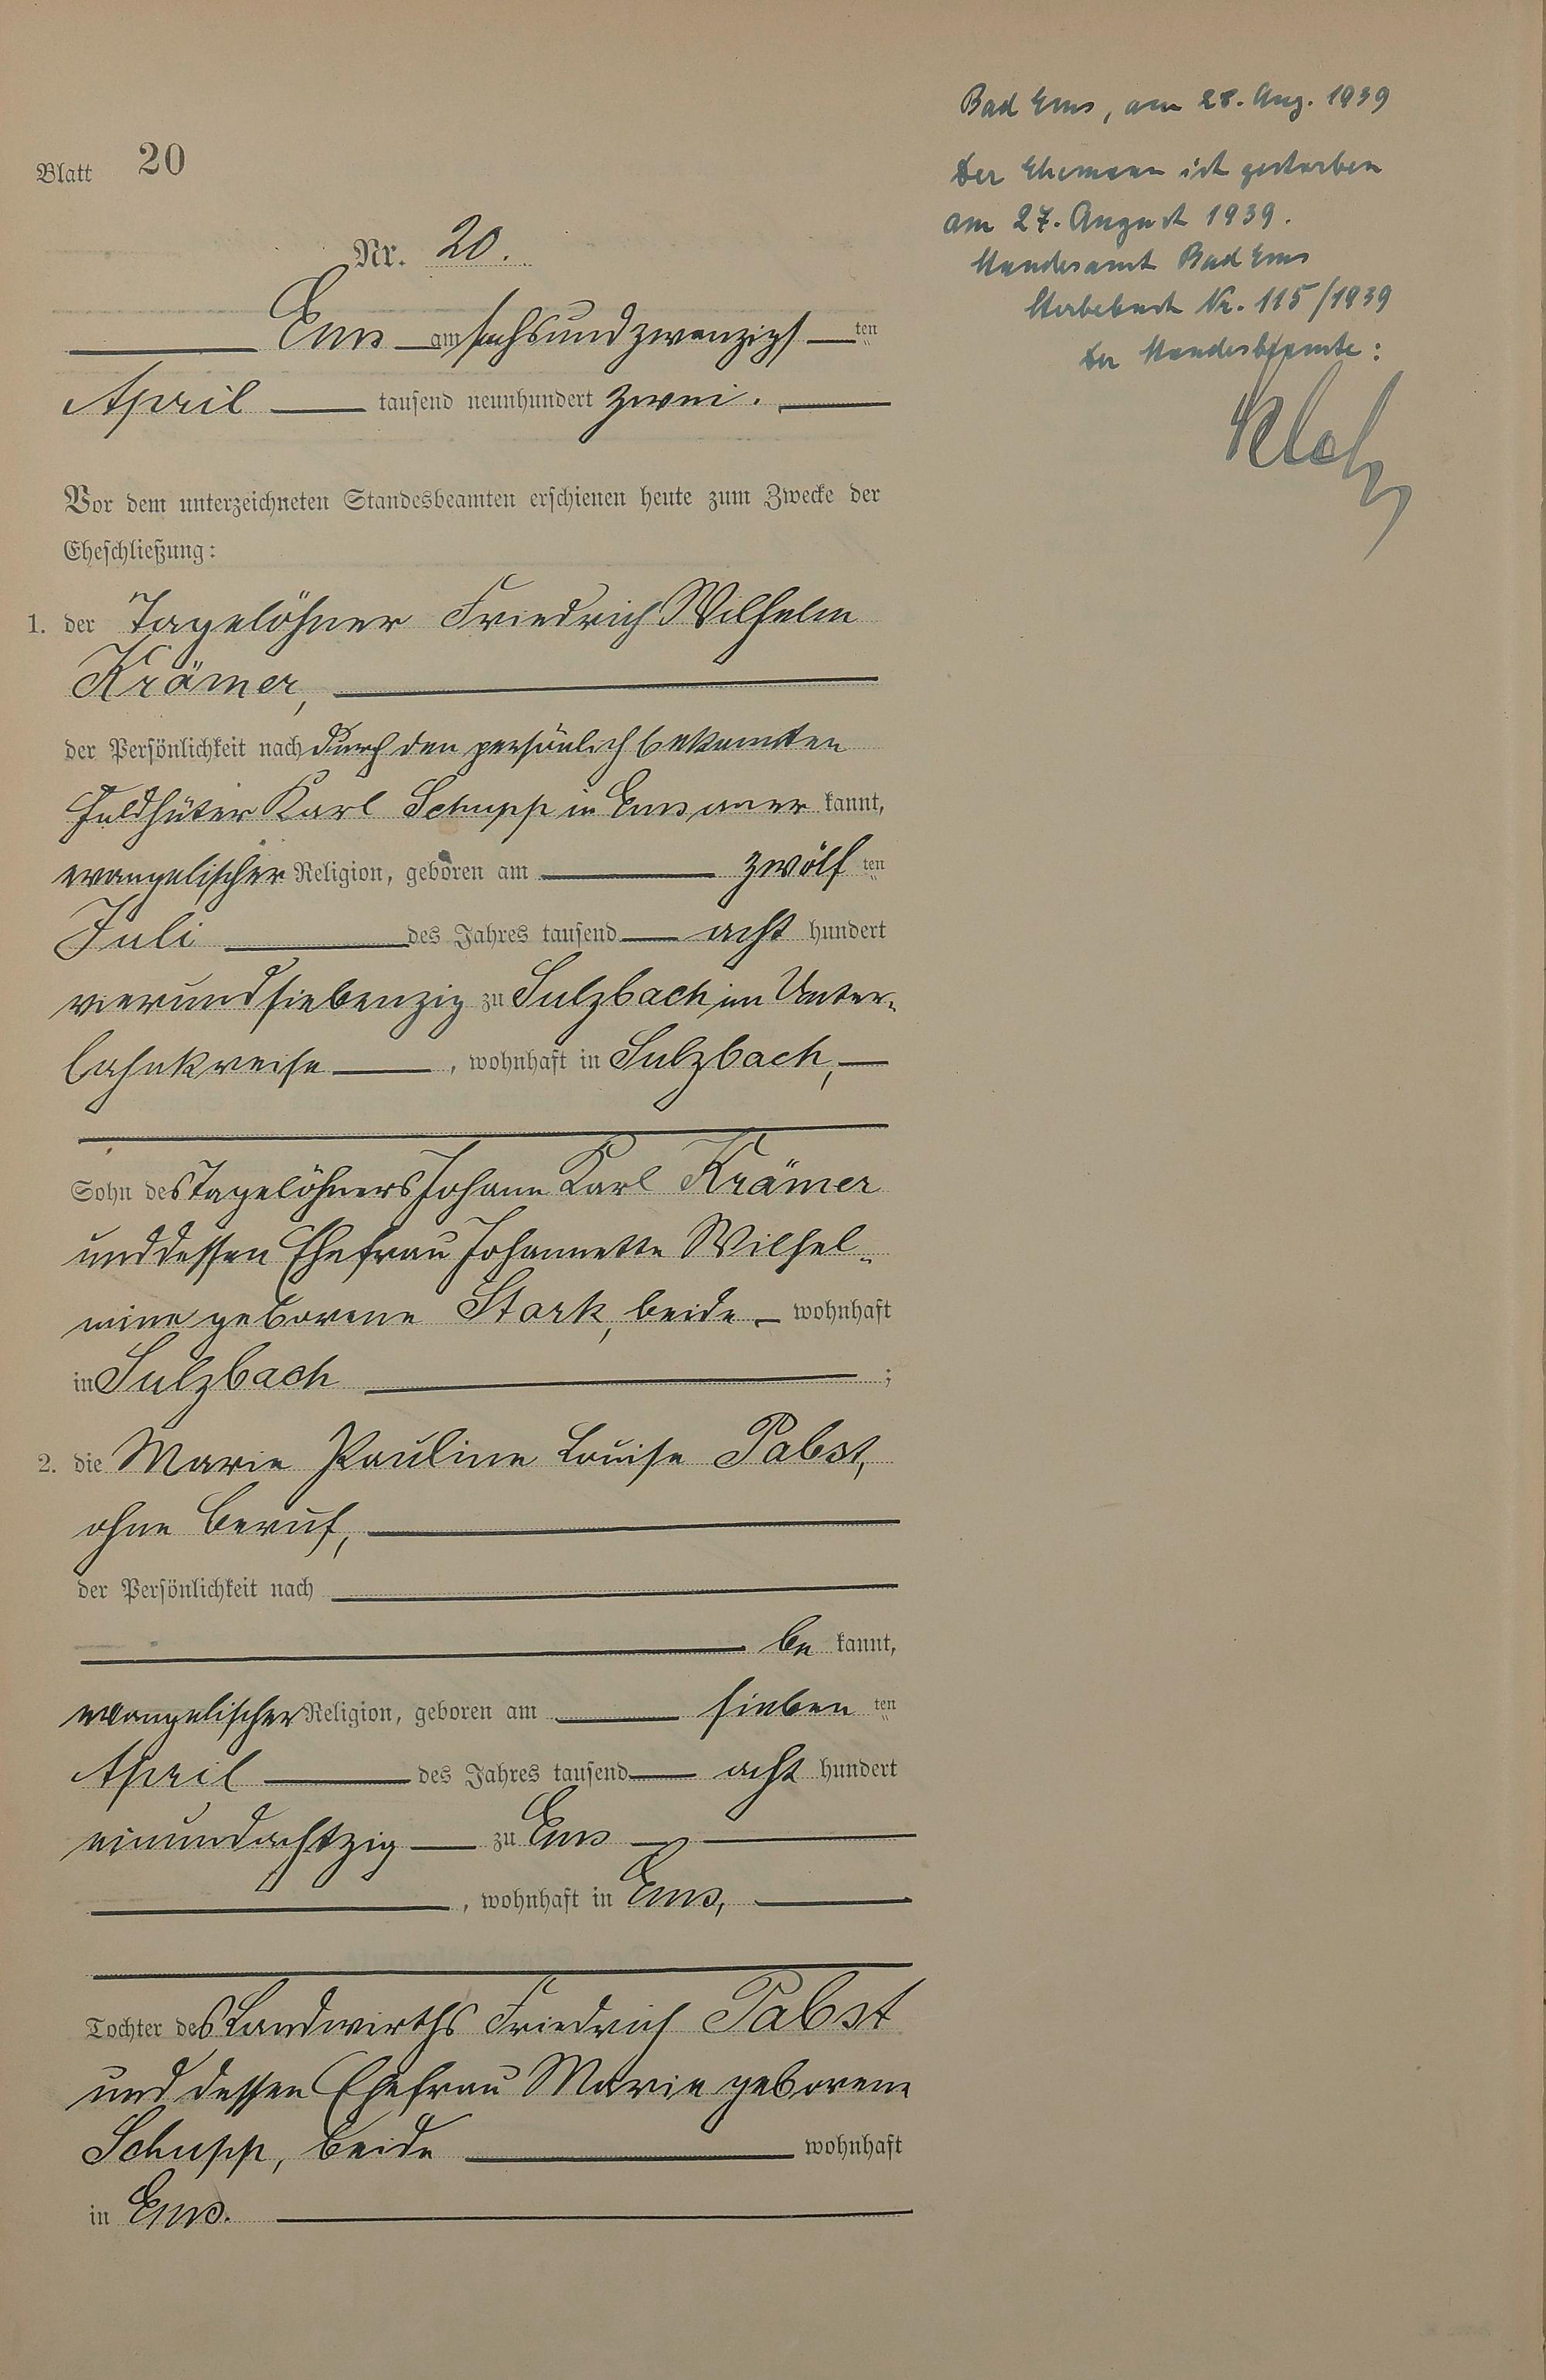 Blatt 20
Nr. 20.
Ems am sechsundzwanzigsten
April tausend neunhundert zwei.
Vor dem unterzeichneten Standesbeamten erschienen heute zum Zwecke der
Eheschließung:
1. der Tagelöhner Friedrich Wilhelm
Krämer,
der Persönlichkeit nach durch den persönlich bekannten
Feldhüter Karl Schupp in Ems aner kannt,
evangelischer Religion, geboren am zwölf ten
Juli des Jahres tausend acht hundert
vierundsiebenzig zu Sulzbach im Unter-
lahnkreise, wohnhaft in Sulzbach,
Sohn des Tagelöhners Johann Karl Krämer
und dessen Ehefrau Johannette Wilhel-
mine geborene Stark, beide wohnhaft
in Sulzbach;
2. die Marie Pauline Louise Pabst,
ohne Beruf,
der Persönlichkeit nach
be kannt,
evangelischer Religion, geboren am sieben ten
April des Jahres tausend acht hundert
einundachtzig zu Ems
, wohnhaft in Ems,
Tochter des Landwirths Friedrich Pabst
und dessen Ehefrau Marie geborene
Schupp, beide wohnhaft
in Ems.
Bad Ems, am 28. Aug. 1939
Der Ehemann ist gestorben
am 27. August 1939.
Standesamt Bad Ems
Sterbebuch Nr. 115/1939
Der Standesbeamte: